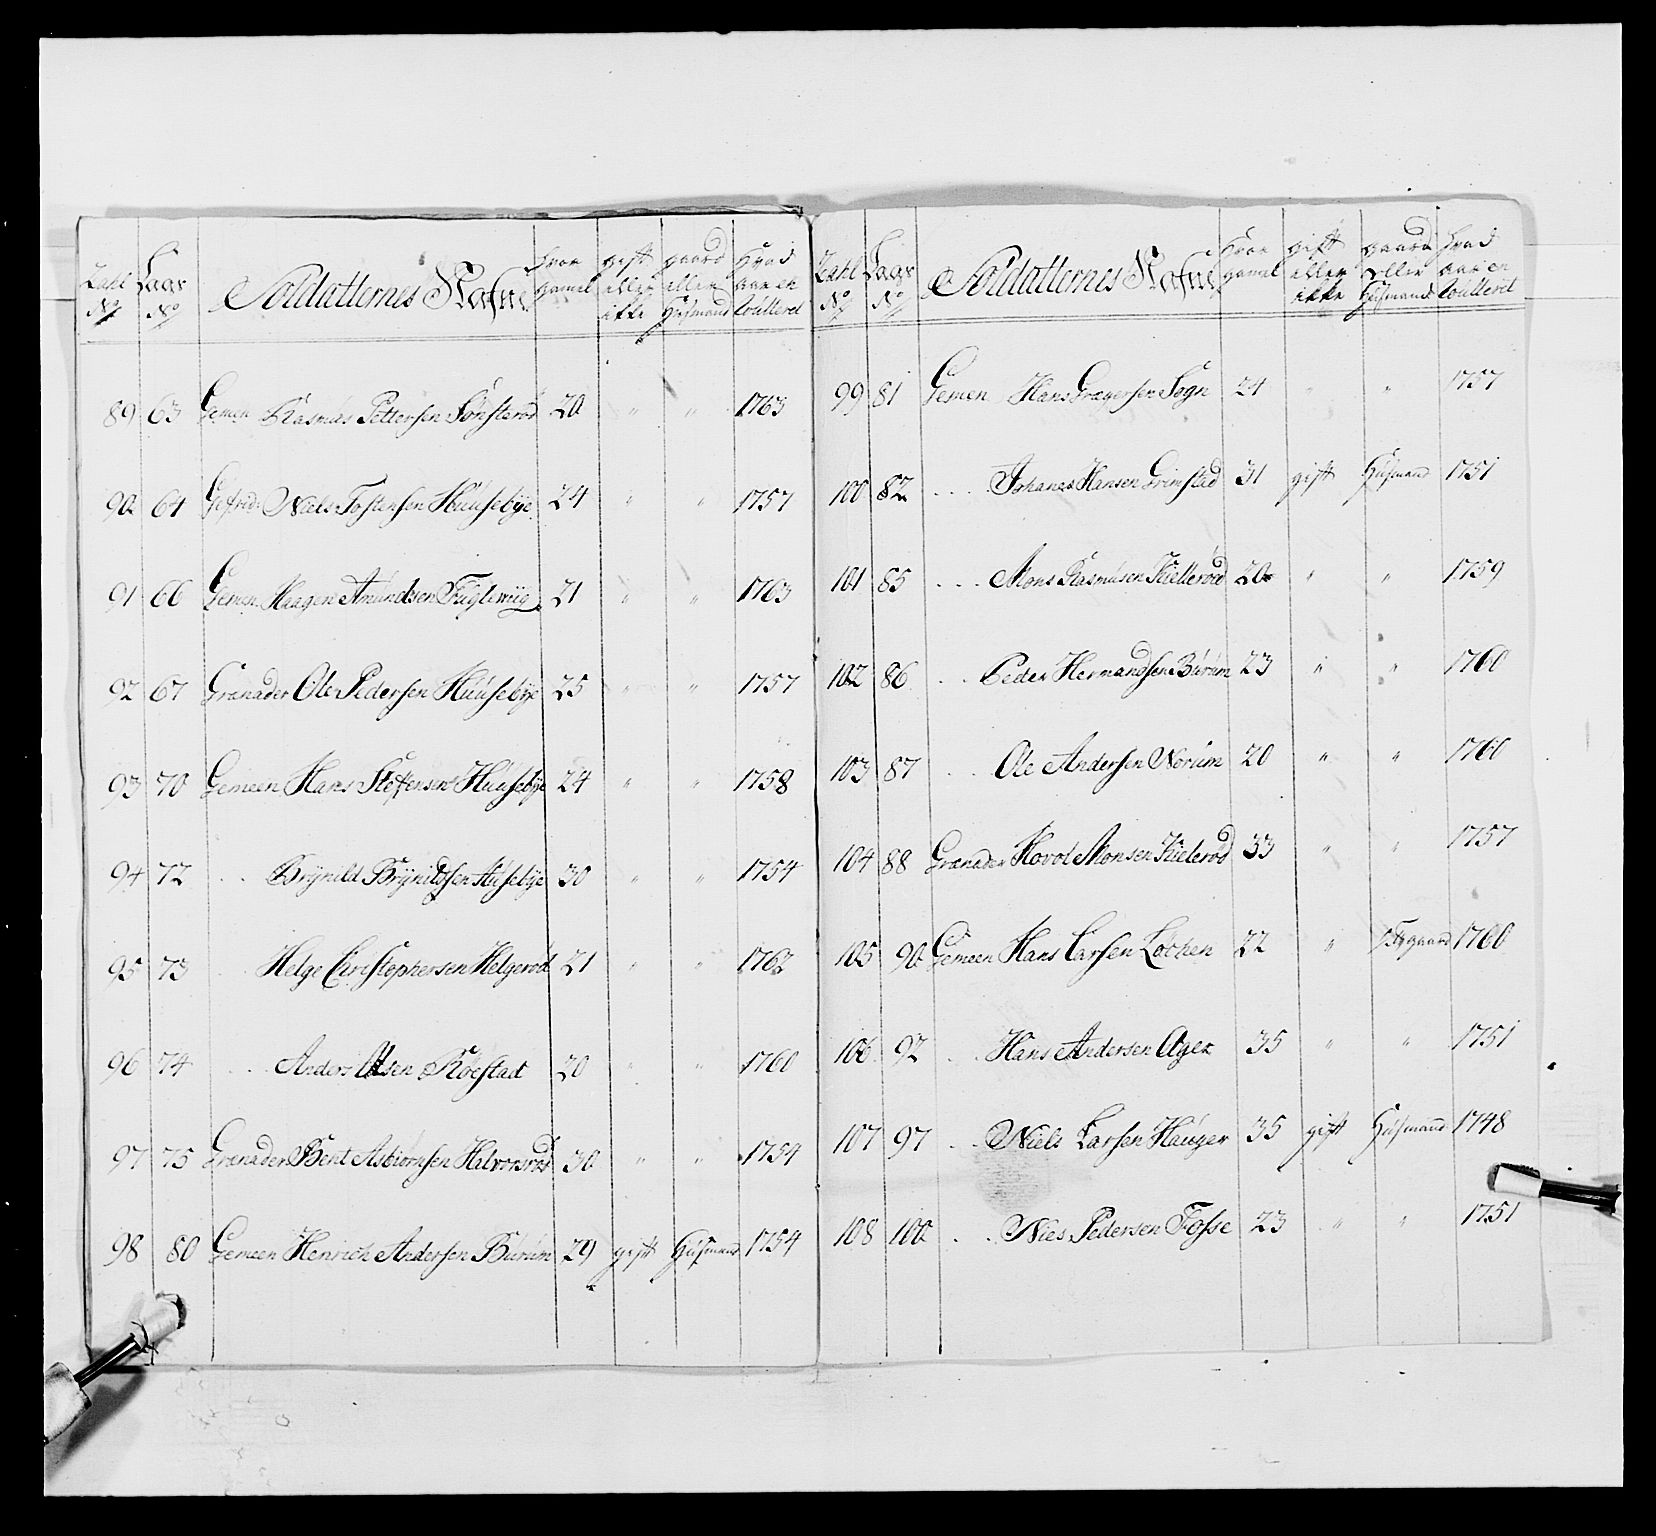 Zahl No Lægs No Soldatternes Nafne hvor gamel gift eller ikke gaard eller Huusmand Hvad aar en Roulleret
89 63 Gemen Rasmus Pettersen Sønsterød 20 " " 1763
90 64 Gefrid: Niels Tostensen Huusebÿe 24 " " 1757
91 66 Gemen Haagen Amundsen Fuglewiig 21 " " 1763
92 67 Granader Ole Pedersen Huusebÿe 25 " " 1757
93 70 Gemeen Hans Steffensen Huusebÿe 24 " " 1758
94 72 . . Brÿnild Brÿnildsen Husebÿe 30 " " 1754
95 73 . . Helge Christophersen Helgerød 21 " " 1762
96 74 . . . Anders Olsen Röestad 20 " " 1760
97 75 Granader Bent Asbiørnsen Halvorsrød 30 " " 1754
98 80 Gemeen Henrich Andersen Burum 29 gift Huusmand 1754
Zahl No Lægs No Soldatternes Nafne Hvor gamel gift eller ikke gaard eller Huusmand hvad aar en Roulleret
99 81 Gemen Hans Gragersen Sogn 24 " " 1757
100 82 . . . . Johanes Hansen Grimstad 31 gift Huusmand 1751
101 85 . . . . Mons Rasmusen Kiellerød 20 " " 1759
102 86 . . Peder Hermandsen Burum 23 " " 1760
103 87 . . . Ole Andersen Norum 20 " " 1760
104 88 Granader Hovol Monsen Kielerød 33 " " 1757
105 90 Gemeen Hans Larsen Løcken 22 " gaard 1760
106 92 . . . Hans Andersen Ager 35 " " 1751
107 97 . . . Niels Larsen Hauger 35 gift Huusmand 1748
108 100 . . . Nies Pedersen Fosse 23 " " 1751